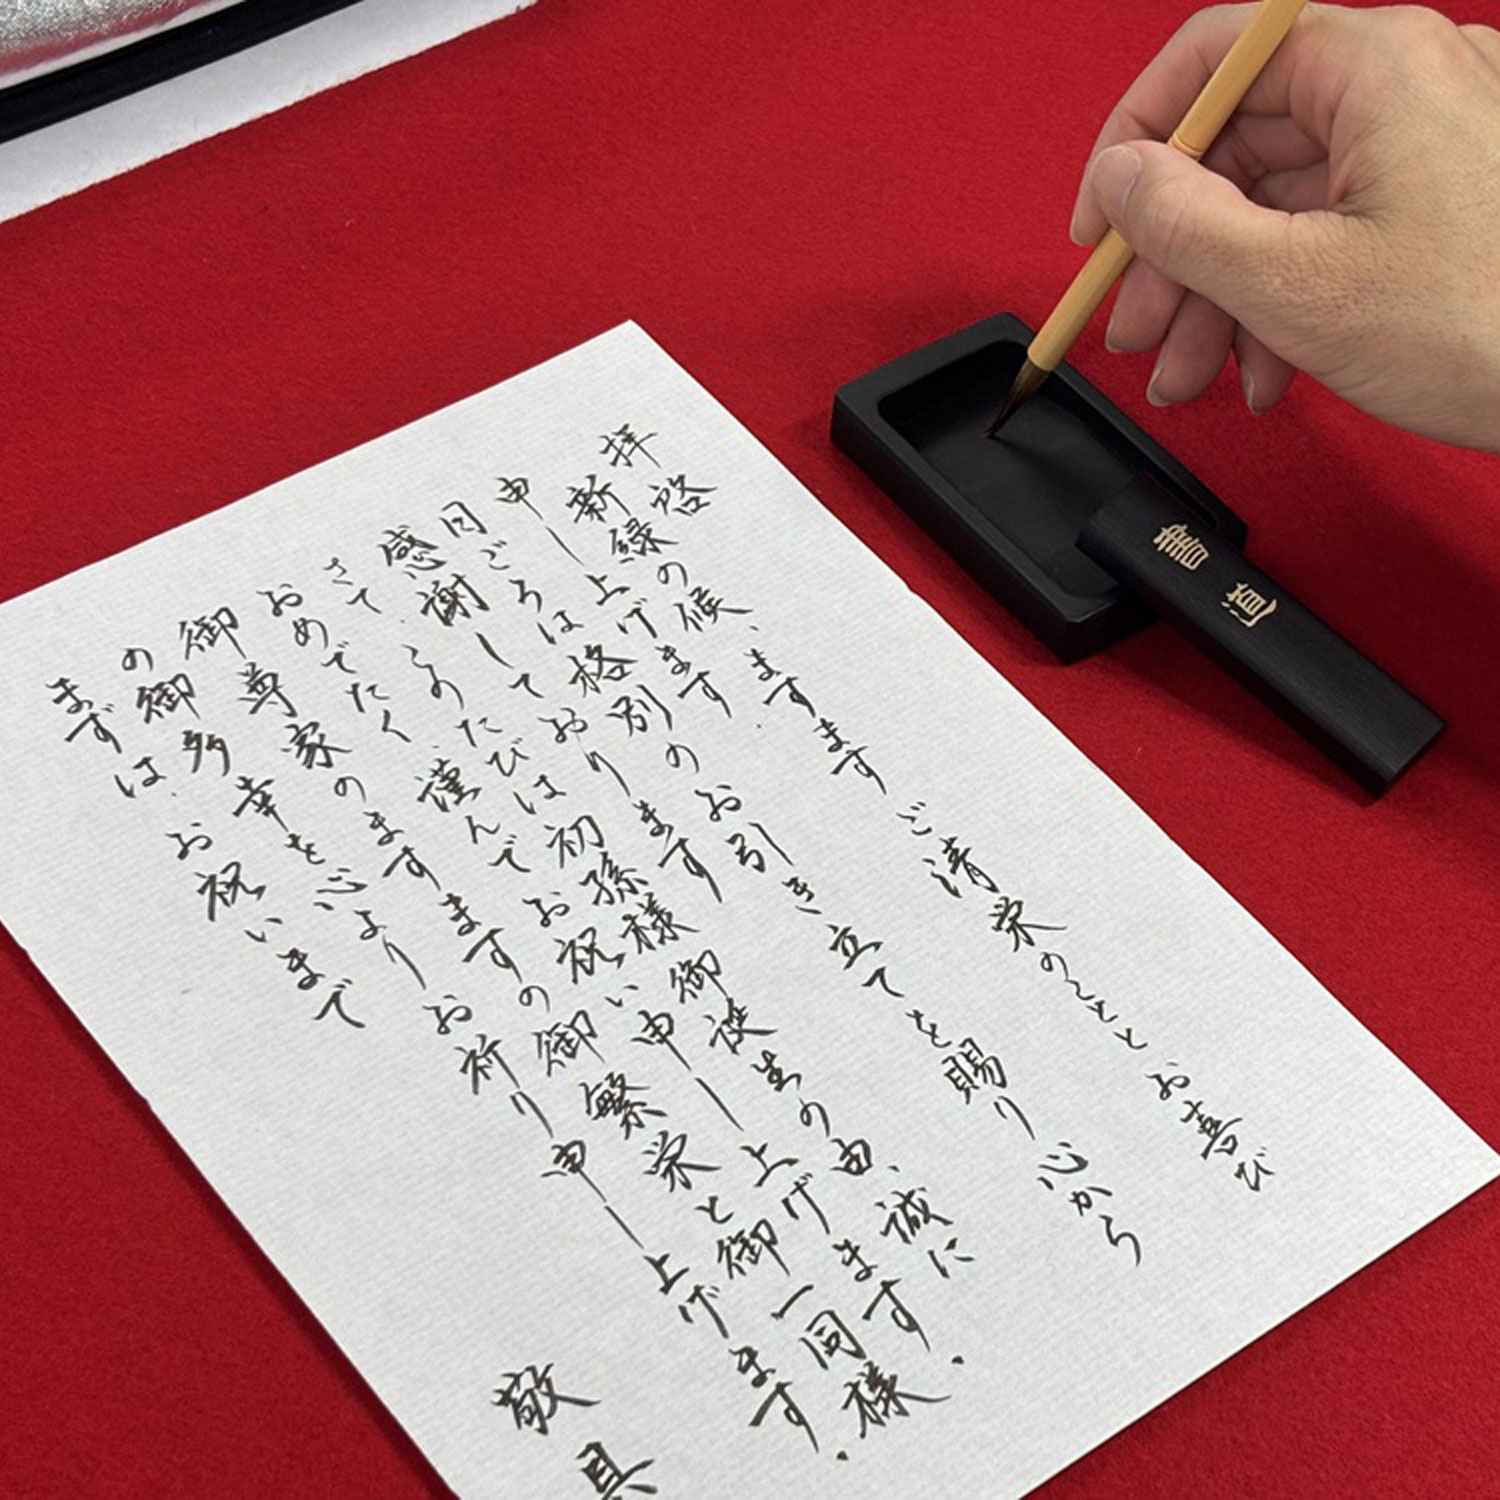 拝啓
新緑の候、ますますご清栄のこととお喜び
申し上げます。
日ごろは格別のお引き立てを賜り心から
感謝しております
さて、このたびは初孫様御誕生の由、誠に
おめでたく謹んでお祝い申し上げます。
御尊家のますますの御繁栄と御一同様
の御多幸を心よりお祈り申し上げます。
まずは、お祝いまで
敬具
書道